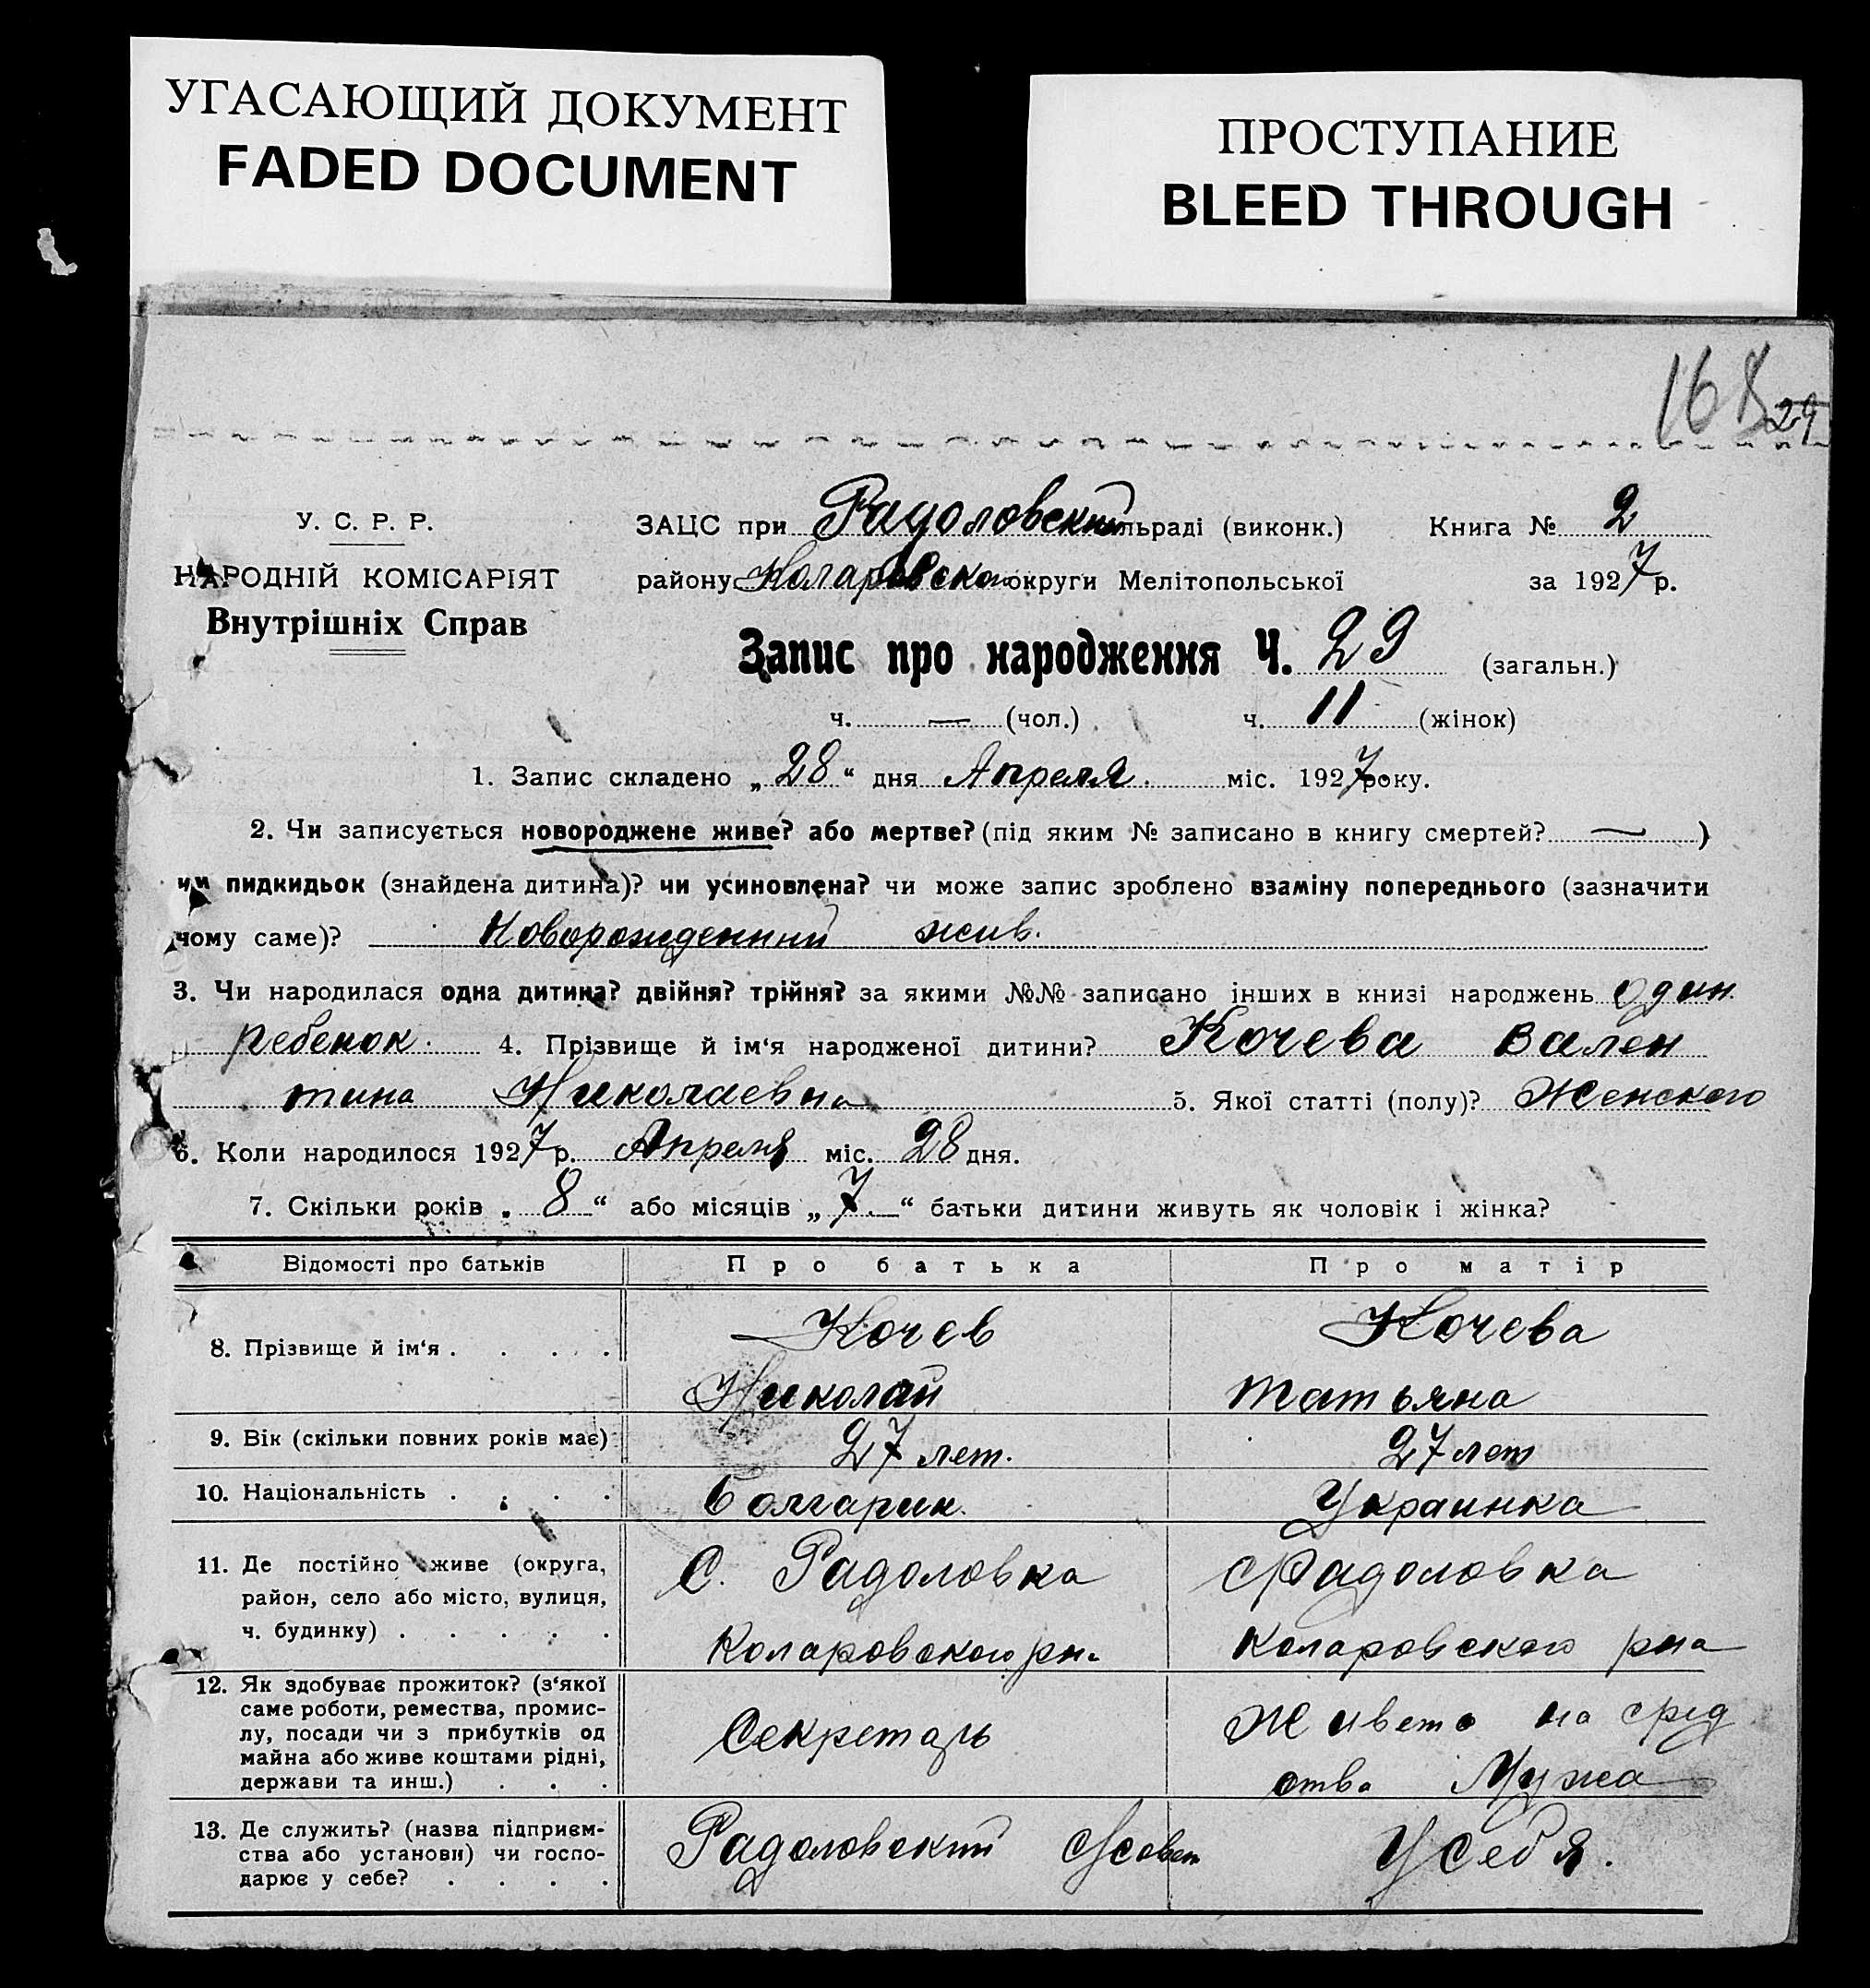 УГАСАЮЩИЙ ДОКУМЕНТ
FADED DOCUMENT
ПРОСТУПАНИЕ
BLEED THROUGH
168 29
У. С. Р. Р.
НАРОДНІЙ КОМІСАРІЯТ
Внутрішніх Справ
ЗАЦС при Радоловский льраді (виконк.) Книга № 2
району Коларовско округи Мелітопольської за 1927 р.
Запис про народження Ч. 29 (загальн.)
ч. — (чол.) ч. 11 (жінок)
1. Запис складено „28“ дня Апреля. міс. 1927 року.
2. Чи записується новороджене живе? або мертве? (під яким № записано в книгу смертей? — )
чи пидкидьок (знайдена дитина)? чи усиновлена? чи може запис зроблено взаміну попереднього (зазначити
чому саме)? Новорожденний жив.
3. Чи народилася одна дитина? двійня? трійня? за якими №№ записано інших в книзі народжень один
ребенок. 4. Прізвище й ім‘я народженої дитини? Кочева Вален
тина Николаевна 5. Якої статті (полу)? Женского
6. Коли народилося 1927 р. Апреля міс. 28 дня.
7. Скільки років „8“ або місяців „7.“ батьки дитини живуть як чоловік і жінка?
Відомості про батьків Про батька Про матір
8. Прізвище й ім‘я . . . . Кочев Кочева
Николай Татьяна
9. Вік (скільки повних років має) 27 лет. 27 лет
10. Національність . . . . Болгарин. Украинка
11. Де постійно живе (округа, С. Радоловка С Радоловка
район, село або місто, вулиця,
ч. будинку) . . . . . Коларовского рн. Коларовского рна
12. Як здобуває прожиток? (з‘якої
саме роботи, ремества, промис-
лу, посади чи з прибутків од Секретарь Живет на сред
майна або живе коштами рідні,
держави та инш.) . . . ства Мужа
13. Де служить? (назва підприєм- Радоловский С/совет У себя.
ства або установи) чи госпо-
дарює у себе? . . . .